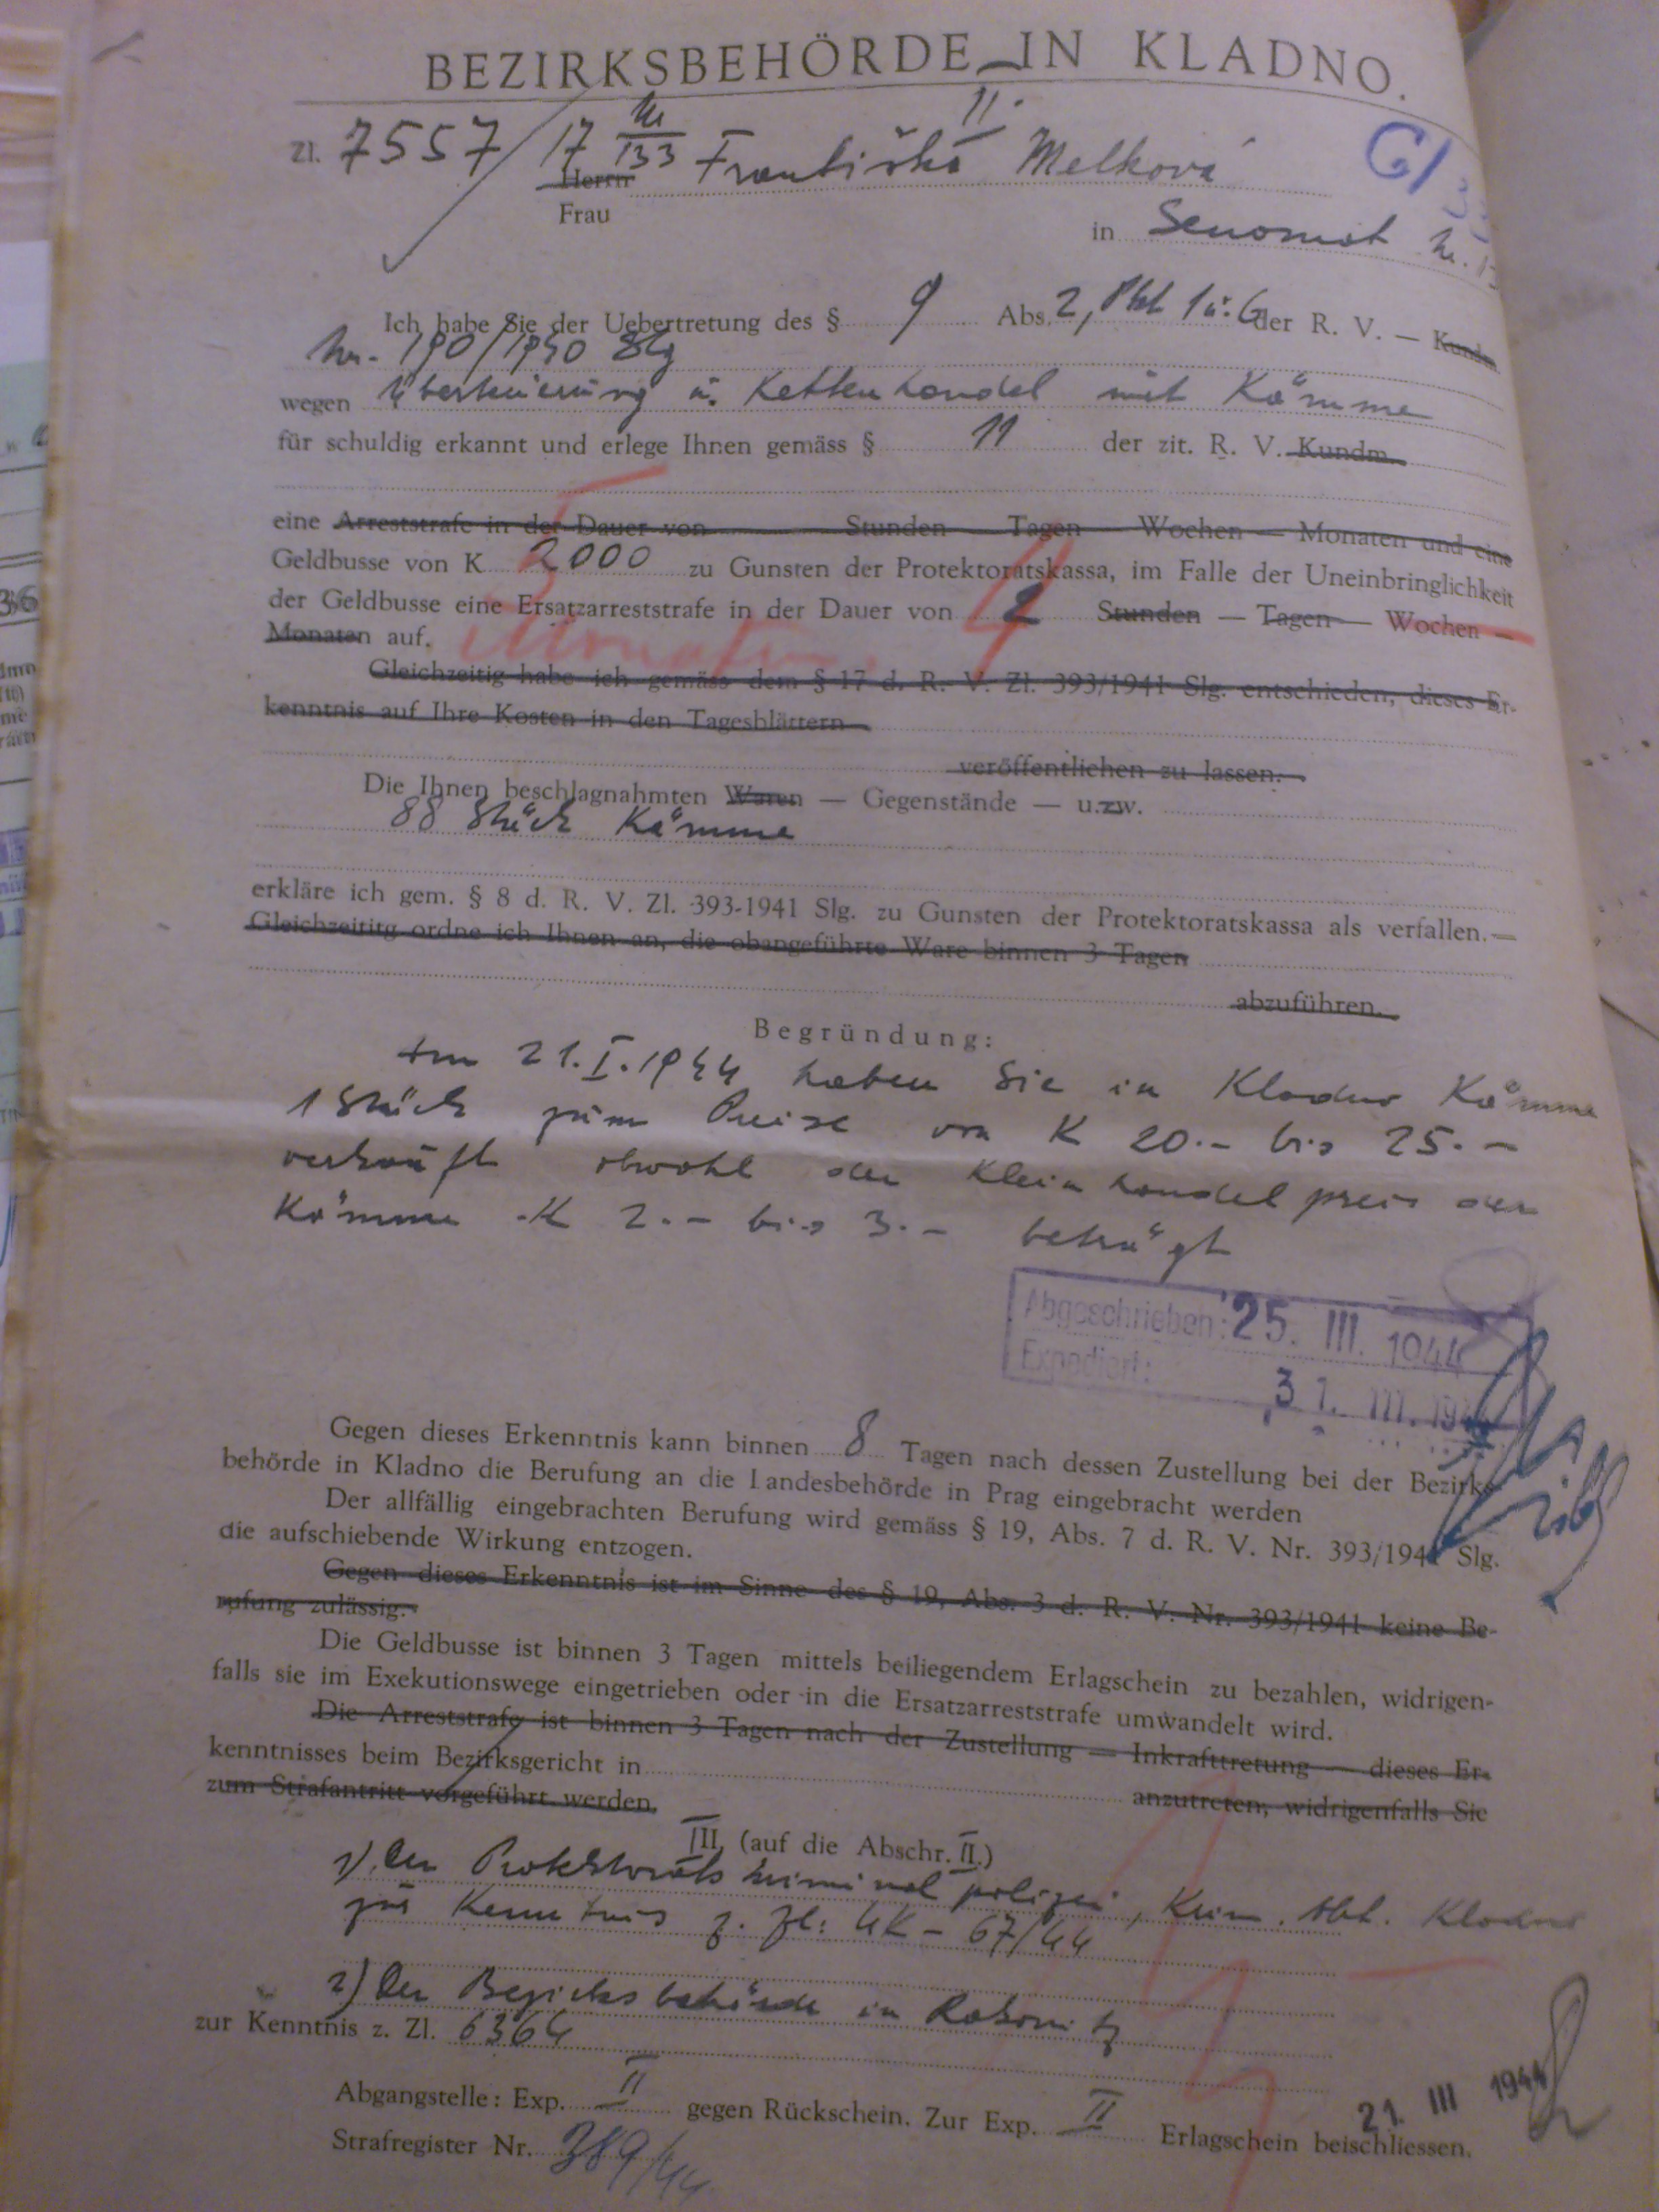 BEZIRKSBEHÖRDE IN KLADNO.
II.
Zl. 7557/17 Nr/133 Františka Melková
Herrn
Frau
in Senomat Nr.
G/
Ich habe Sie der Uebertretung des § 9 Abs. 2, Pkt 1 u. G der R. V. — Kundm.
Nr. 190/1940 Slg
wegen Überteuerung u. Kettenhandel mit Kämme
für schuldig erkannt und erlege Ihnen gemäss § 11 der zit. R. V. Kundm.
eine Arreststrafe in der Dauer von Stunden — Tagen — Wochen — Monaten und eine
Geldbusse von K 2000 zu Gunsten der Protektoratskassa, im Falle der Uneinbringlichkeit
der Geldbusse eine Ersatzarreststrafe in der Dauer von 2 Stunden — Tagen — Wochen —
Monaten auf.
Gleichzeitig habe ich gemäss dem § 17 d. R. V. Zl. 393/1941 Slg. entschieden, dieses Er-
kenntnis auf Ihre Kosten in den Tagesblättern
veröffentlichen zu lassen.
Die Ihnen beschlagnahmten Waren — Gegenstände — u.zw.
88 Stück Kämme
erkläre ich gem. § 8 d. R. V. Zl. 393-1941 Slg. zu Gunsten der Protektoratskassa als verfallen.—
Gleichzeititg ordne ich Ihnen an, die obangeführte Ware binnen 3 Tagen
abzuführen.
Begründung:
Am 21.I.1944 haben Sie in Kladno Kämme
1 Stück zum Preise von K 20.- bis 25.-
verkauft obwohl der Kleinhandelpreis der
Kämme K 2.- bis 3.- beträgt
Abgeschrieben: 25. III. 1944
Expediert: 31. III. 1944
Gegen dieses Erkenntnis kann binnen 8 Tagen nach dessen Zustellung bei der Bezirks-
behörde in Kladno die Berufung an die Landesbehörde in Prag eingebracht werden
Der allfällig eingebrachten Berufung wird gemäss § 19, Abs. 7 d. R. V. Nr. 393/1941 Slg.
die aufschiebende Wirkung entzogen.
Gegen dieses Erkenntnis ist im Sinne des § 19, Abs. 3 d. R. V. Nr. 393/1941 keine Be-
rufung zulässig.
Die Geldbusse ist binnen 3 Tagen mittels beiliegendem Erlagschein zu bezahlen, widrigen-
falls sie im Exekutionswege eingetrieben oder in die Ersatzarreststrafe umwandelt wird.
Die Arreststrafe ist binnen 3 Tagen nach der Zustellung — Inkrafttretung — dieses Er-
kenntnisses beim Bezirksgericht in
anzutreten, widrigenfalls Sie
zum Strafantritt vorgeführt werden.
III. (auf die Abschr. II.)
1) Der Protektorats kriminal polizei, Krim. Abt. Kladno
zur Kenntnis z. Zl: UK - 67/44
2) Der Bezirksbehörde in Rakonitz
zur Kenntnis z. Zl. 6364
Abgangstelle: Exp. II gegen Rückschein. Zur Exp. II Erlagschein beischliessen.
21. III 1944
Strafregister Nr. 389/44